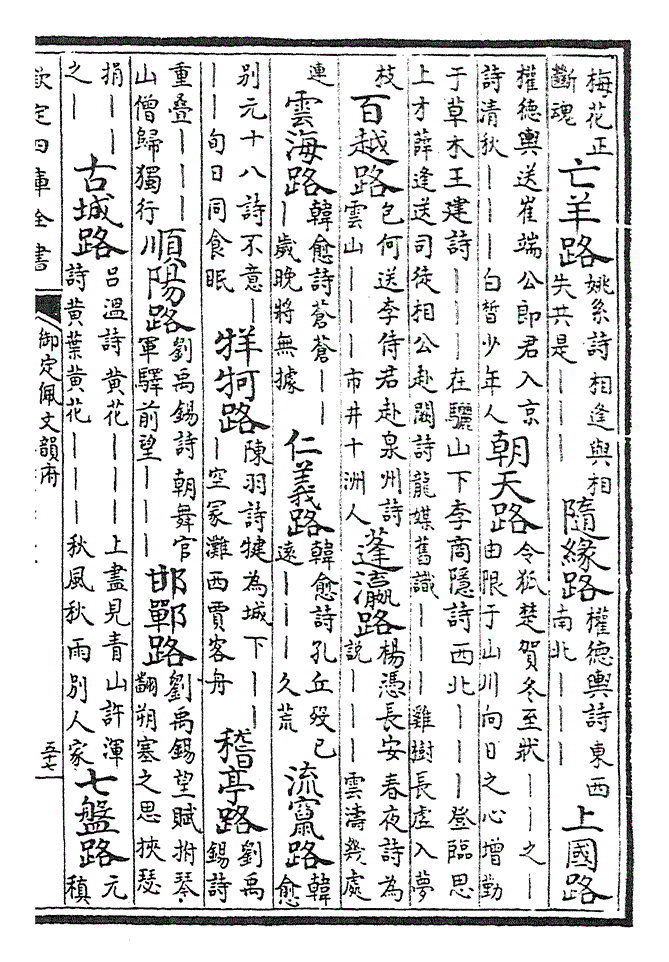 梅花正斷魂 亡羊路 姚系詩相逢與相失共是｜｜｜ 隨緣路 權德輿詩東西南北｜｜｜ 上國路
權德輿送崔端公郎君入京詩清秋｜｜｜白皙少年人 朝天路 令狐楚賀冬至狀｜｜之｜由限于山川向日之心增勤
于草木王建詩｜｜｜在驪山下李商隱詩西北｜｜｜登臨思上才薛逢送司徒相公赴闕詩龍媒舊識｜｜｜雞樹長虛入夢
枝 百越路 包何送李侍君赴泉州詩雲山｜｜｜市井十洲人 蓬瀛路 楊憑長安春夜詩為說｜｜｜雲濤幾處
連 雲海路 韓愈詩蒼蒼｜｜｜歲晚將無據 仁義路 韓愈詩孔丘殁已遠｜｜｜久荒 流竄路 韓愈
别元十八詩不意｜｜｜旬日同食眠 牂牁路 陳羽詩犍為城下｜｜｜空冢灘西賈客舟 稽亭路 劉禹錫詩
重疊｜｜｜山僧歸獨行 順陽路 劉禹錫詩朝舞官軍驛前望｜｜｜ 邯鄲路 劉禹錫望賦拊琴翻朔塞之思挾瑟
捐｜｜之｜ 古城路 呂溫詩黄花｜｜｜上盡見青山許渾詩黄葉黄花｜｜｜秋風秋雨别人家 七盤路 元稹
欽定四庫全書 御定佩文韻府 五十七